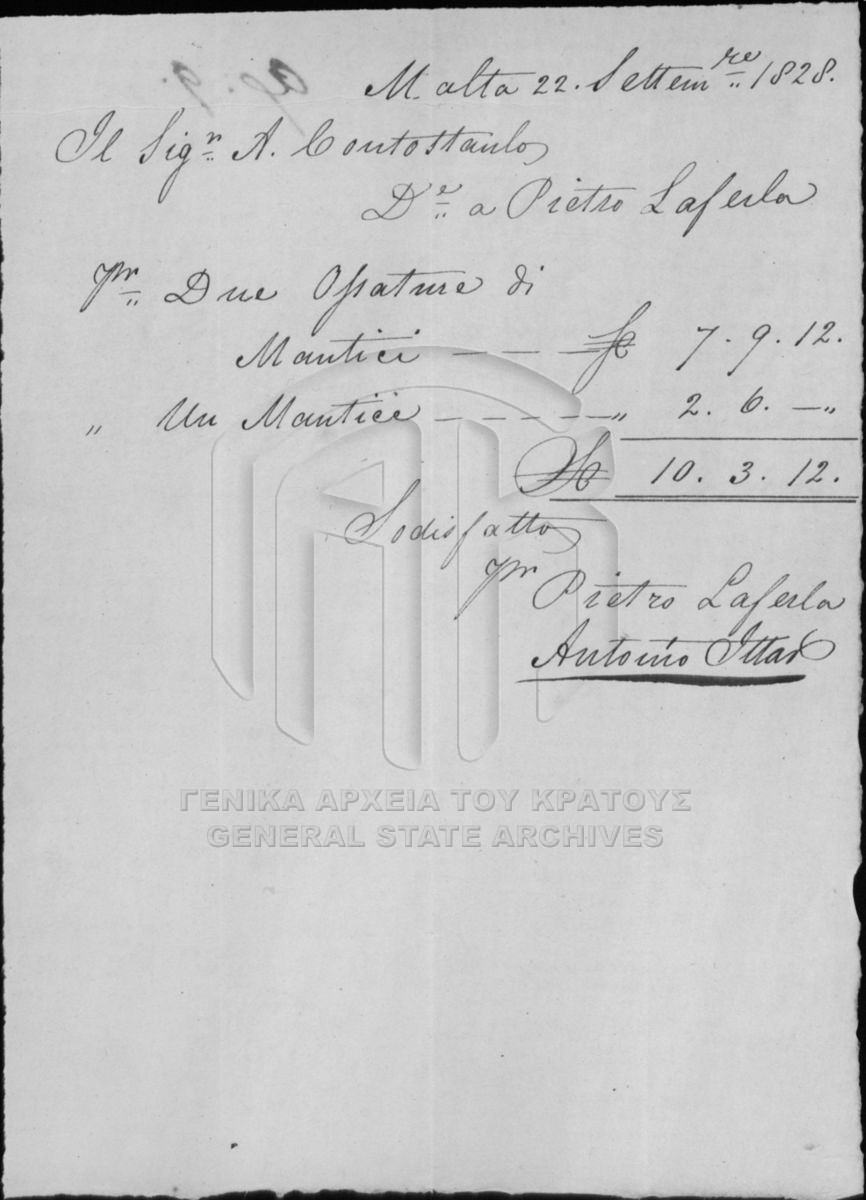 Malta 22. Settemre 1828.
Il Sign A. Contostaulo
Dre a Pietro Laferla
Pr Due Ossature di
Mantici - - - Sc 7. 9. 12.
" Un Mantice - - - - - " 2. 6. - "
Sc 10. 3. 12.
Sodisfatto
Pr Pietro Laferla
Antonio Ittar
ΓΕΝΙΚΑ ΑΡΧΕΙΑ ΤΟΥ ΚΡΑΤΟΥΣ
GENERAL STATE ARCHIVES